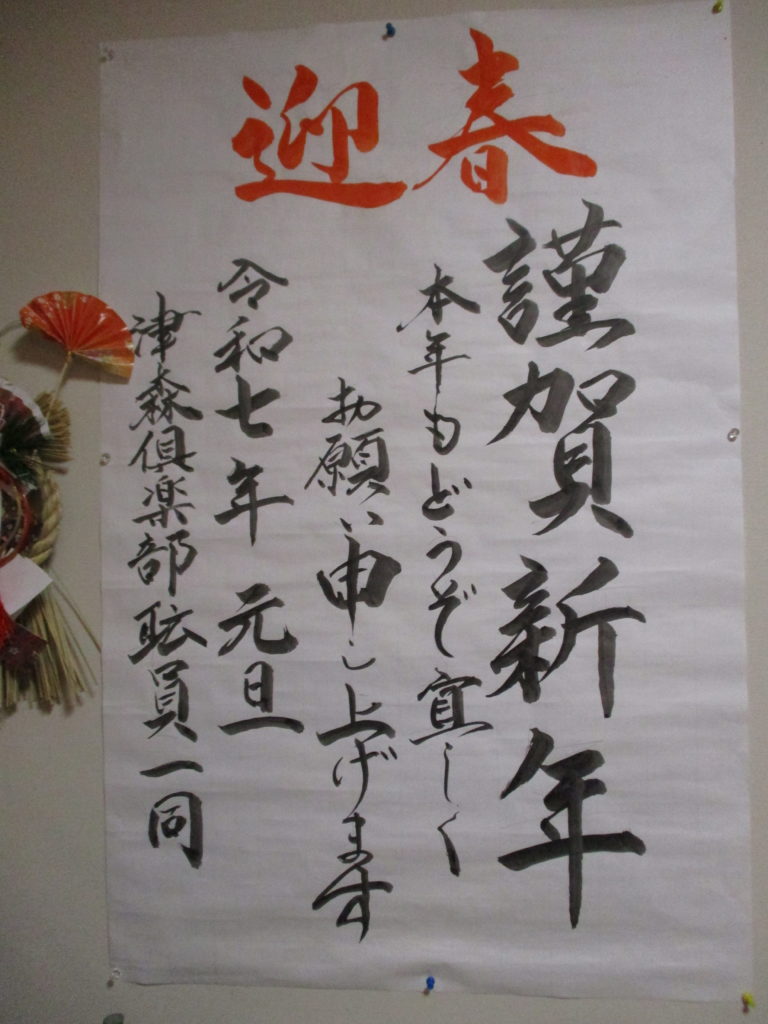 迎春
謹賀新年
本年もどうぞ宜しく
お願い申し上げます
令和七年 元旦
津森倶楽部職員一同